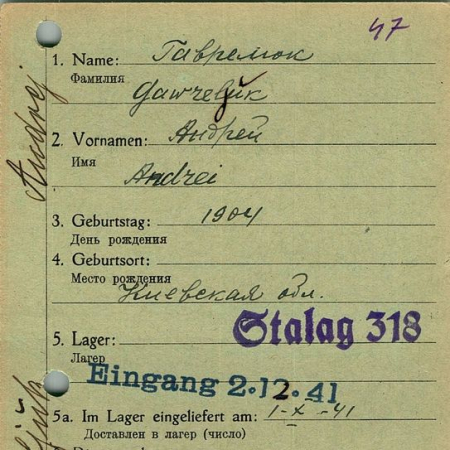 47
1. Name: Гаврелюк
Фамилия
Gawreljuk
2. Vornamen: Андрей
Имя
Andrei
3. Geburtstag: 1904
День рождения
4. Geburtsort:
Место рождения
Киевская обл.
Stalag 318
5. Lager:
Лагер
Eingang 2.12.41
5a. Im Lager eingeliefert am: 1-X-41
Доставлен в лагер (число)
Andrej